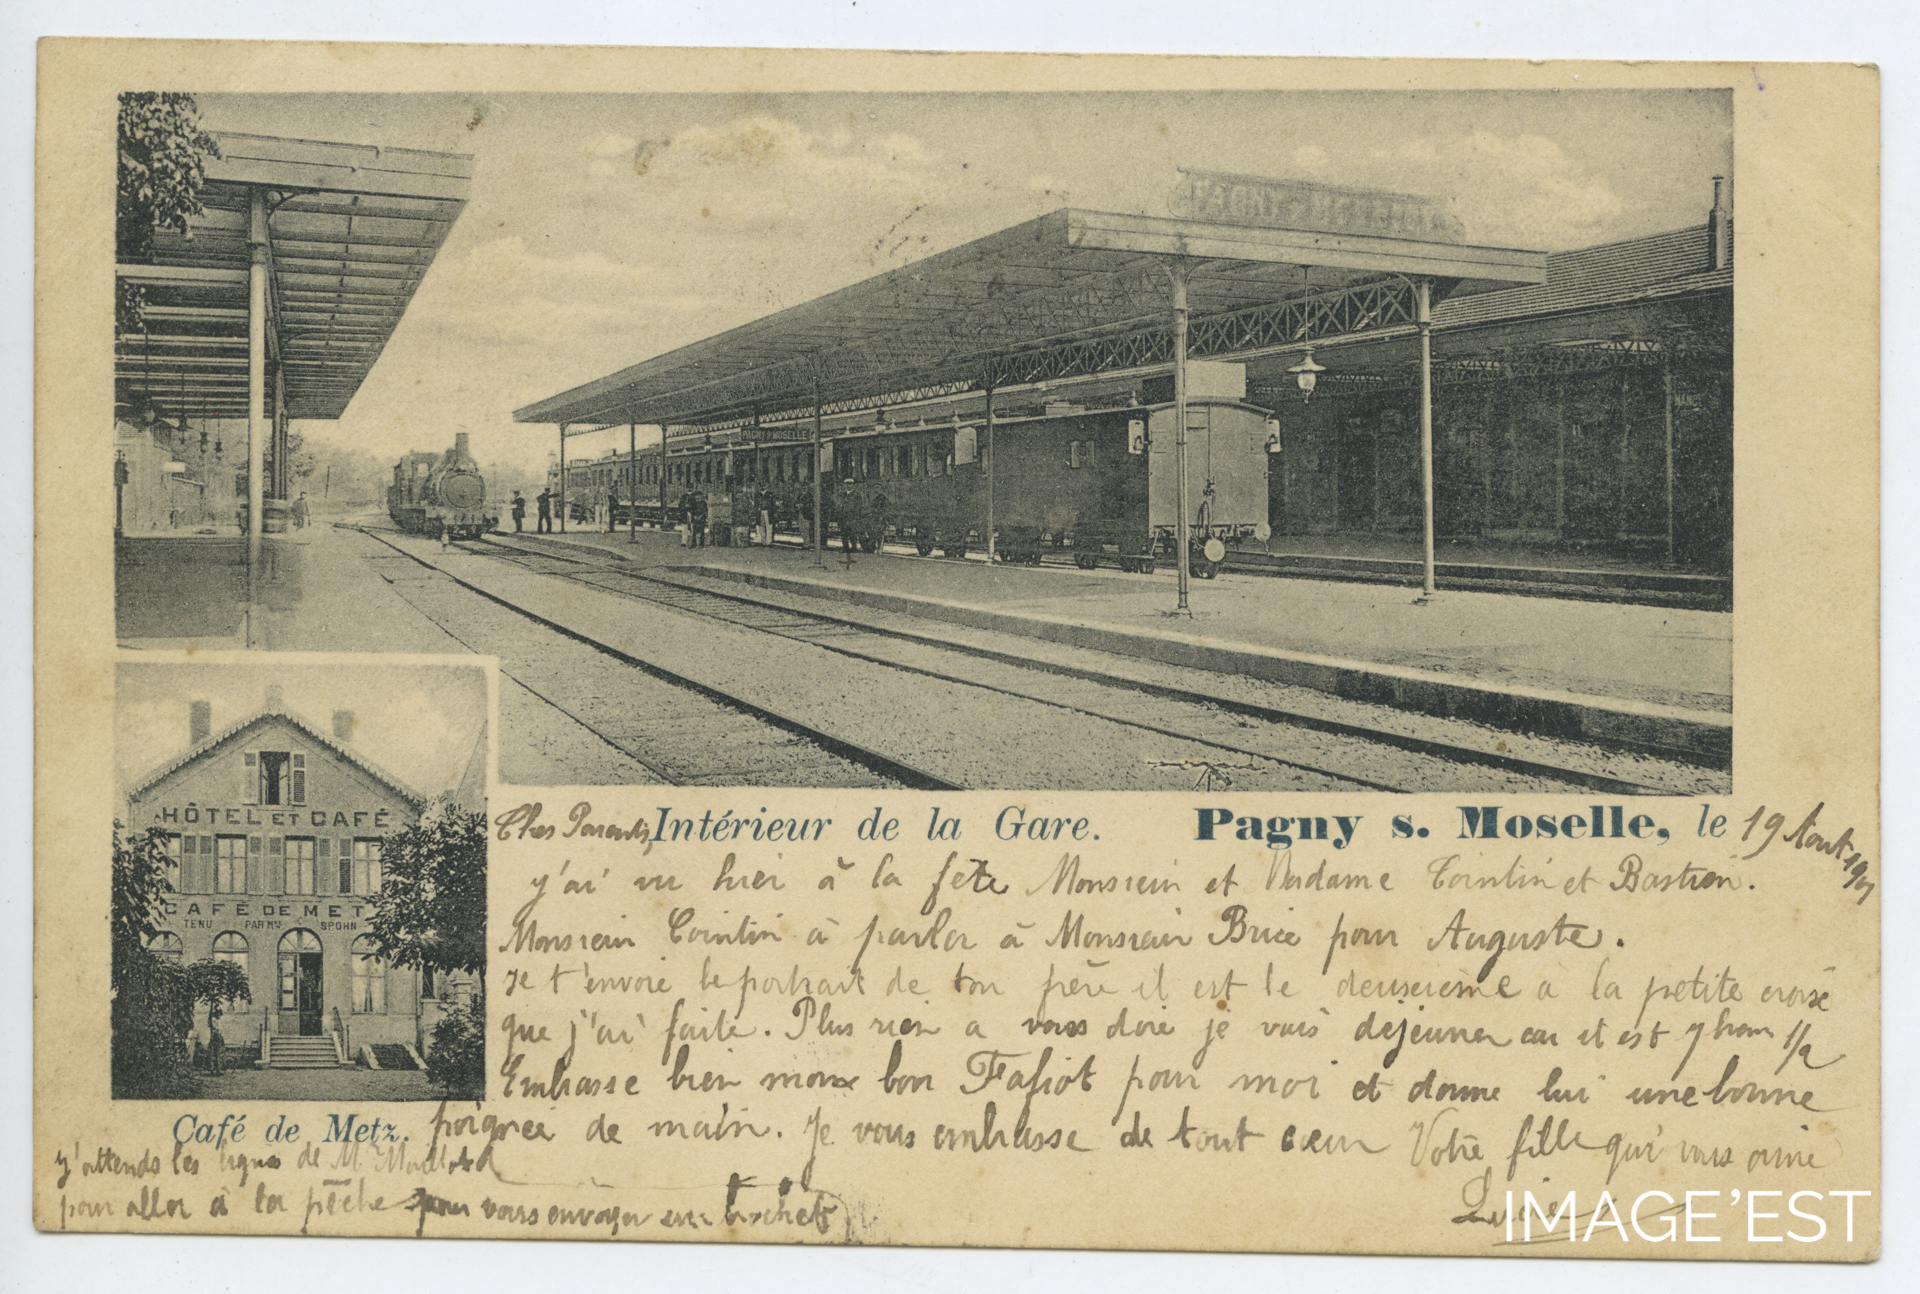 PAGNY S MOSELLE
PAGNY S MOSELLE
HÔTEL ET CAFÉ
CAFÉ DE METZ
TENU PAR MME SPOHN
Café de Metz.
Intérieur de la Gare.
Pagny s. Moselle, le 19 Aout 1901
Chers Parents,
j'ai vu hier à la fete Monsieur et Madame Cointin et Bastien.
Monsieur Cointin à parler à Monsieur Brice pour Auguste.
Je t'envoie le portrait de ton père il est le deuxieme a la petite croix
que j'ai faite. Plus rien a vous dire je vais dejeuner car il est 7 heure 1/2
Embrasse bien mon bon Fafiot pour moi et donne lui une bonne
poignée de main. Je vous embrasse de tout cœur Votre fille qui vous aime
Lucie
j'attends les lignes de Mr
pour aller à la pêche pour vous envoyer un brochet
IMAGE'EST